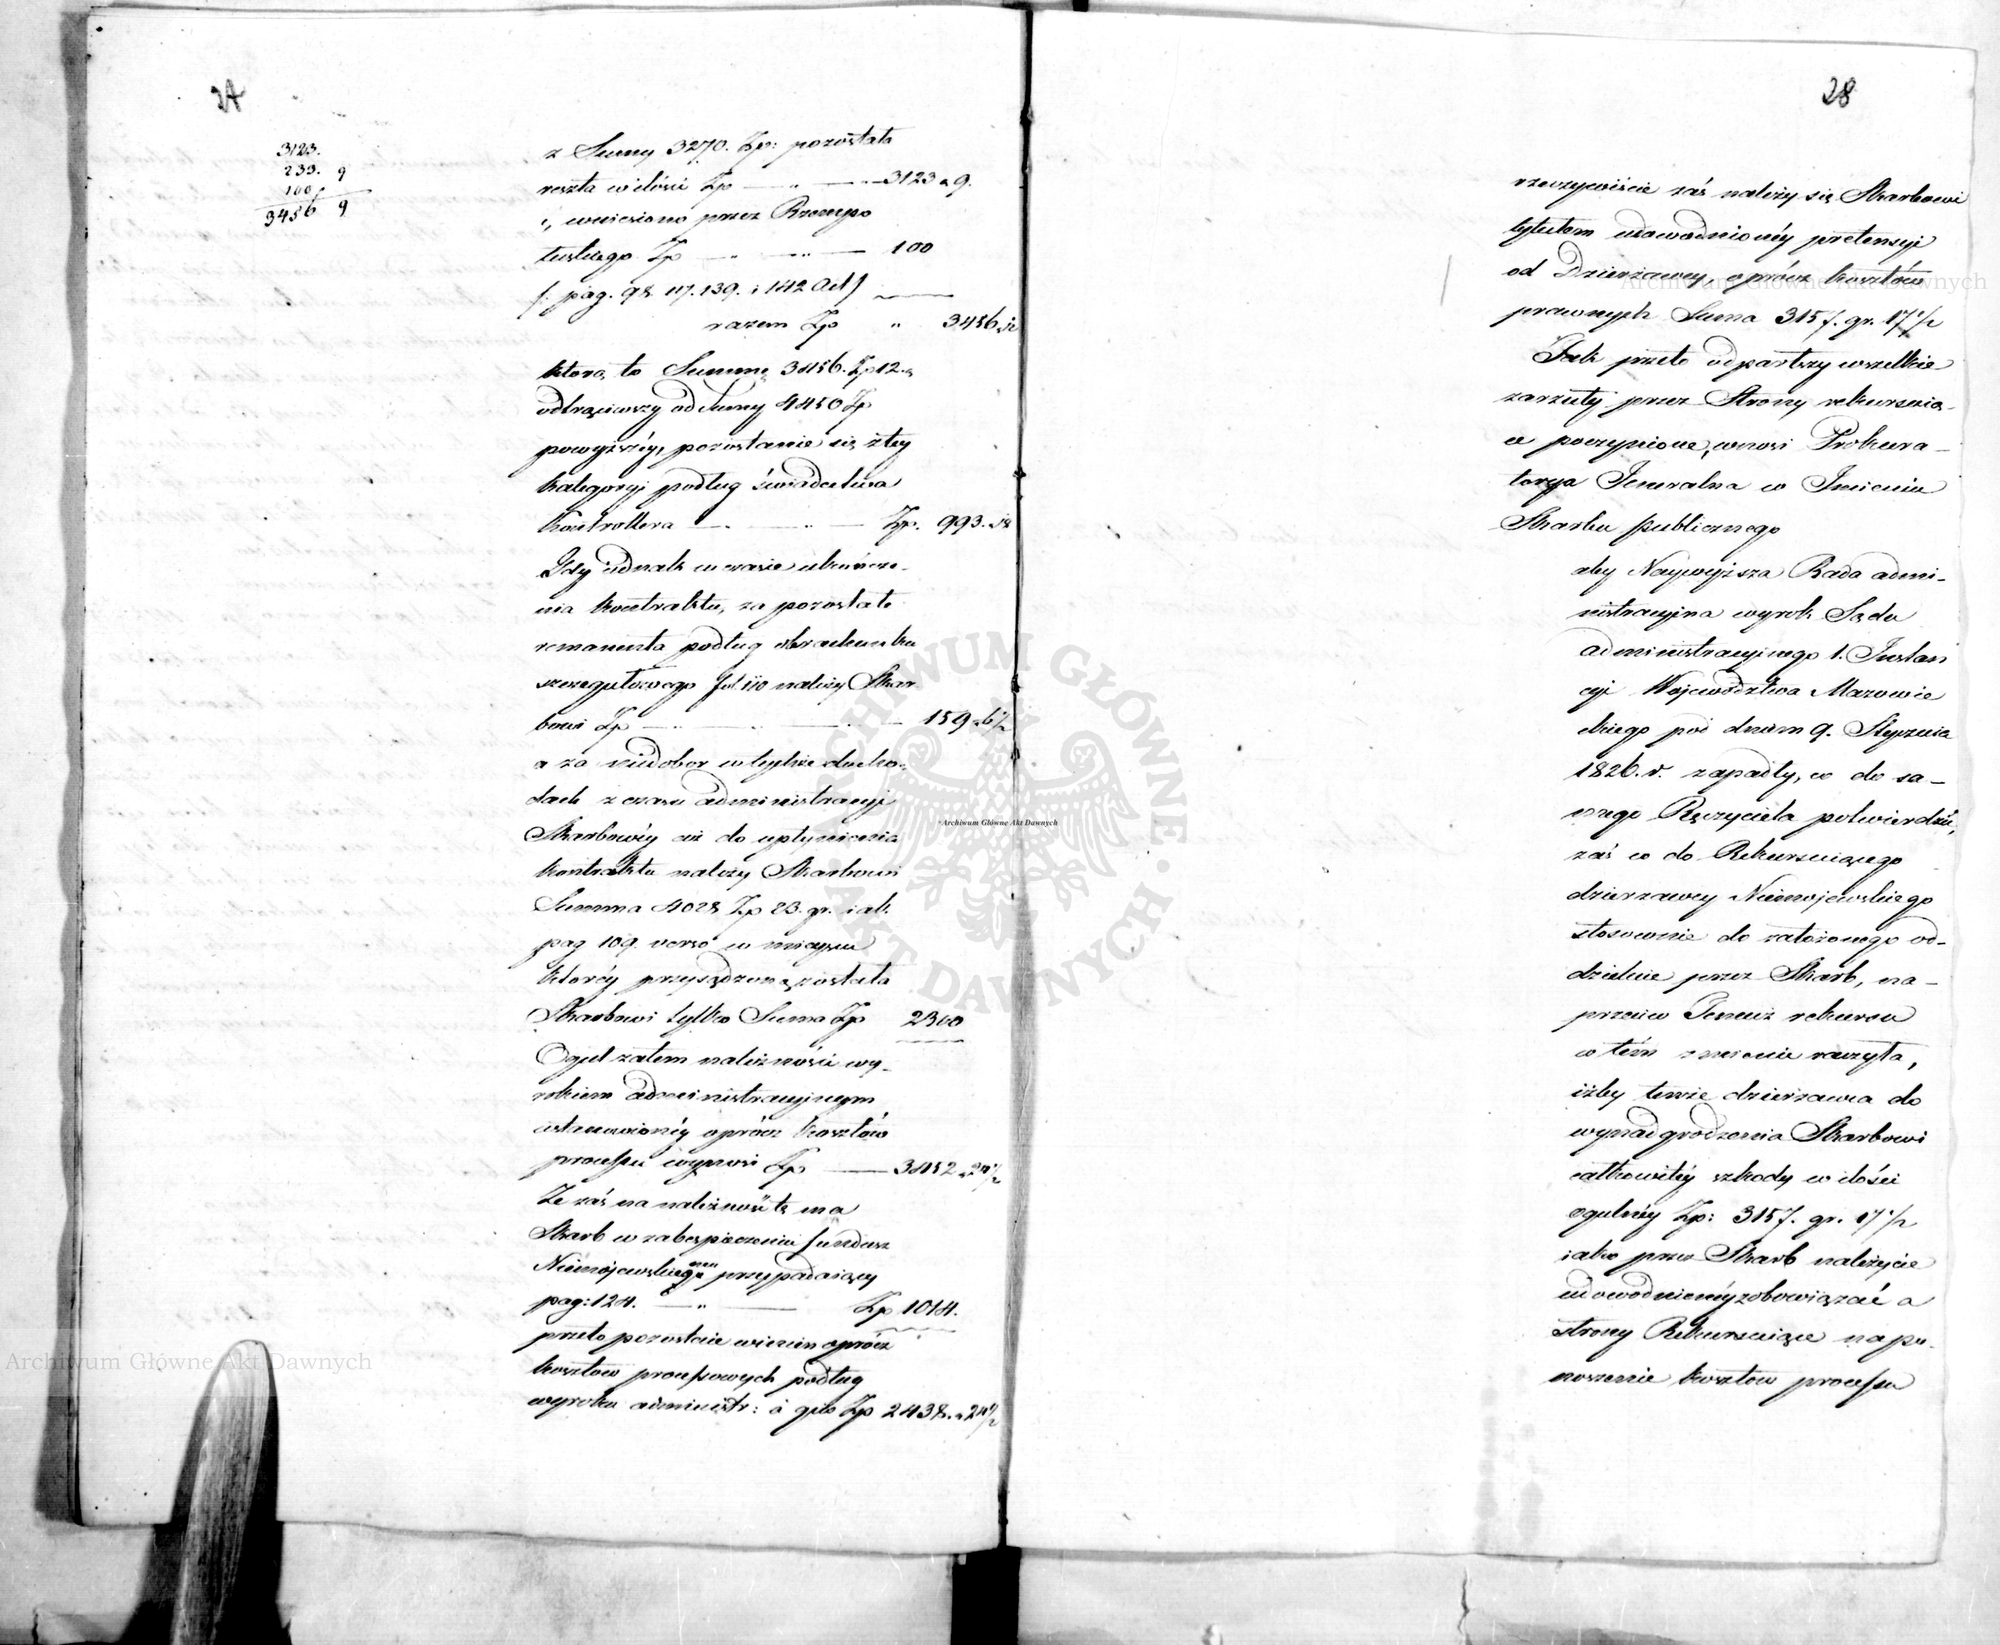 24
3123.
233. 9
100
3456 9
z Sumy 3270. Zp: pozostała
reszta w ilości Zp — " — 3123 " 9.
i, wniesiono przez Rzempo
łuskiego Zp — " — 100
/: pag. 98. 117. 139. i 142 Act/
razem Zp " 3456
którą to Summę 3456. Zp 12.
odtrąciwszy od Sumy 4450 Zp
powyższéy, pozostanie się z téy
kategoryi podług świadectwa
Kontrollera — Zp. 993. 18
Gdy jednak w czasie ukończe-
nia kontraktu, za pozostałe
remanenta podług obrachunku
szczegułowego fol. 110 należy Skar
bowi Zp — 159 " 6 1/2
a za niedobor w tychże docho-
dach z czasu administracyi
Skarbowéy aż do upłynienia
kontraktu należy Skarbowi
Summa 4028 Zp 23. gr. iak
pag 109. verso w mieysce
któréy przysądzoną została
Skarbowi tylko Suma Zp 2300
Oguł zatem należności wy-
rokiem administracyjnym
ustanowionéy oprócz kosztów
processu wynosi Zp — 3452 " 24 1/2
Ze zaś na należność tę ma
Skarb w zabezpieczeniu fundusz
Niemojewskiego przypadaiący
pag: 124. — " — Zp 1014.
przeto pozostaie winien oprócz
kosztow processowych podług
wyroku administr: o gule Zp 2438. " 24 1/2
28
rzeczywiście zaś należy się Skarbowi
tytułem udowodnionéy pretensyi
od Dzierżawcy oprócz kosztów
prawnych Suma 3157. gr. 17 1/2
Tak przeto odparłszy wszelkie
zarzuty przez Strony rekursuią-
ce poczynione, wnosi Prokura-
torya Jeneralna w Imieniu
Skarbu publicznego
aby Naywyższa Rada admi-
nistracyjna wyrok Sądu
administracyjnego 1. Instan
cyi Województwa Mazowie
ckiego pod dniem 9. Stycznia
1826. r. zapadły, co do sa-
mego Ręczyciela potwierdzić,
zaś co do Rekursuiącego
dzierzawcy Niemojewskiego
stosownie do założonego od-
dzielnie przez Skarb, na-
przeciw Temuż rekursu
w tém zmienić raczyła,
iżby tenże dzierżawca do
wynadgrodzenia Skarbowi
całkowitéy szkody w ilości
ogulnéy Zp: 3157. gr. 17 1/2
iako przez Skarb należycie
udowodnionéy zobowiązać a
strony Rekursuiące na po-
noszenie kosztow processu
Archiwum Główne Akt Dawnych
Archiwum Główne Akt Dawnych
Archiwum Główne Akt Dawnych
ARCHIWUM GŁÓWNE AKT DAWNYCH